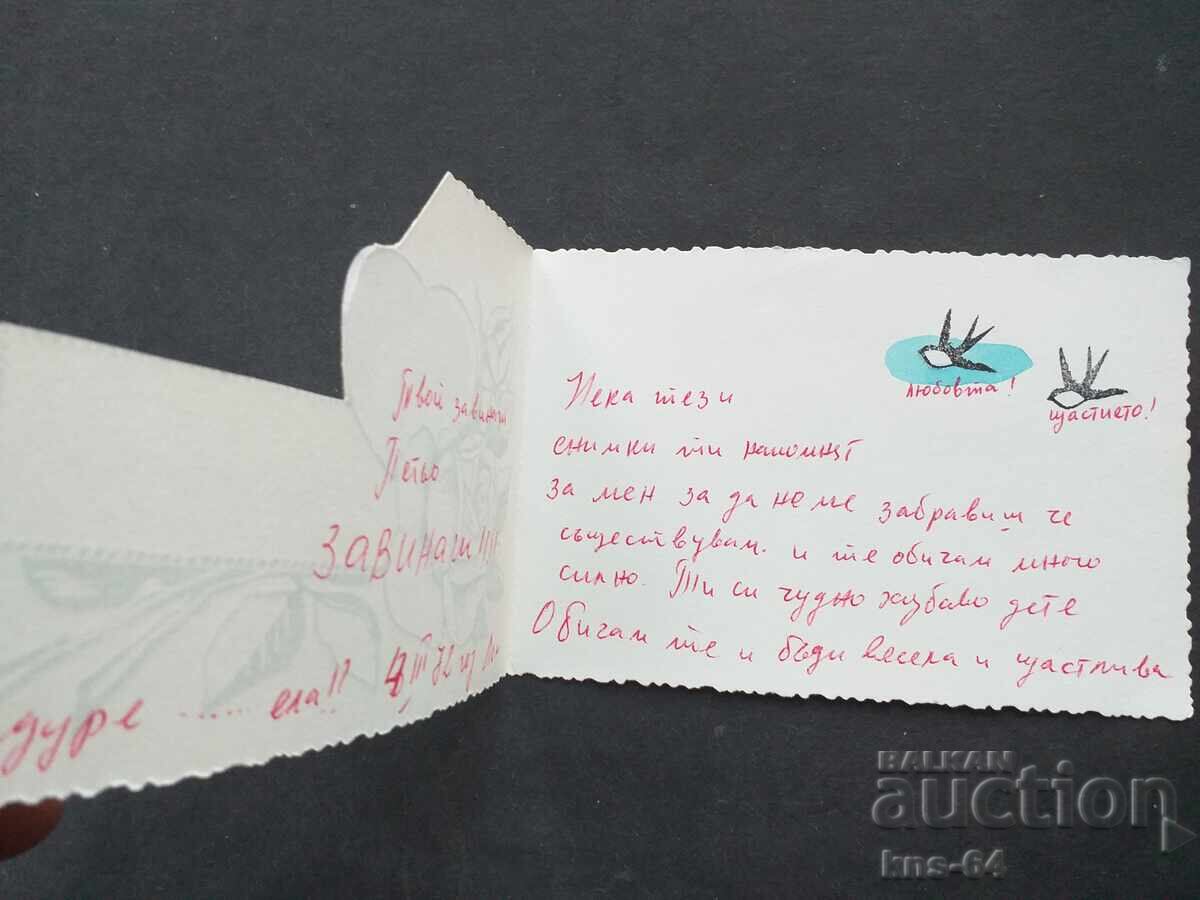 Твой завинаги
Петьо
ЗАВИНАГИ!!!
дуре ...... ела!!
любовта!
щастието!
Нека тези
снимки ти напомнят
за мен за да не ме забравиш че
съществувам. и те обичам много
силно. Ти си чудно хубаво дете
Обичам те и бъди весела и щастлива
BALKAN
auction
kns-64